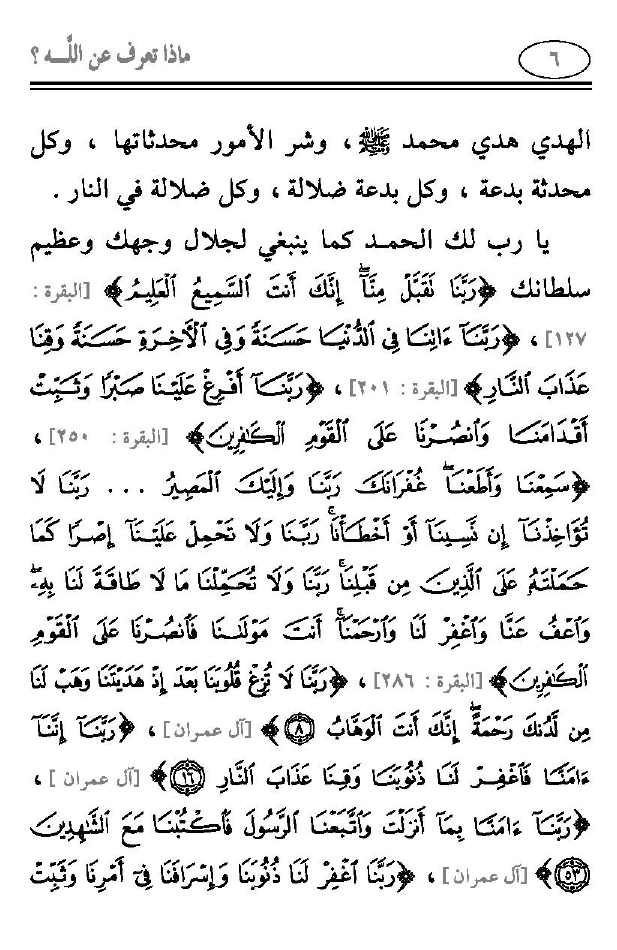 ماذا تعرف عن اللَّـه ؟ ٦
الهدي هدي محمد ﷺ ، وشر الأمور محدثاتها ، وكل
محدثة بدعة ، وكل بدعة ضلالة ، وكل ضلالة في النار .
يا رب لك الحمد كما ينبغي لجلال وجهك وعظيم
سلطانك ﴿رَبَّنَا تَقَبَّلْ مِنَّآ ۖ إِنَّكَ أَنتَ السَّمِيعُ الْعَلِيمُ﴾ [البقرة :
١٢٧] ، ﴿رَبَّنَآ ءَاتِنَا فِي الدُّنْيَا حَسَنَةً وَفِي الْآخِرَةِ حَسَنَةً وَقِنَا
عَذَابَ النَّارِ﴾ [البقرة : ٢٠١] ، ﴿رَبَّنَآ أَفْرِغْ عَلَيْنَا صَبْرًا وَثَبِّتْ
أَقْدَامَنَا وَانصُرْنَا عَلَى الْقَوْمِ الْكَٰفِرِينَ﴾ [البقرة : ٢٥٠] ،
﴿سَمِعْنَا وَأَطَعْنَا ۖ غُفْرَانَكَ رَبَّنَا وَإِلَيْكَ الْمَصِيرُ ... رَبَّنَا لَا
تُؤَاخِذْنَآ إِن نَّسِينَآ أَوْ أَخْطَأْنَا ۚ رَبَّنَا وَلَا تَحْمِلْ عَلَيْنَآ إِصْرًا كَمَا
حَمَلْتَهُ عَلَى الَّذِينَ مِن قَبْلِنَا ۚ رَبَّنَا وَلَا تُحَمِّلْنَا مَا لَا طَاقَةَ لَنَا بِهِۦ ۖ
وَاعْفُ عَنَّا وَاغْفِرْ لَنَا وَارْحَمْنَآ ۚ أَنتَ مَوْلَىٰنَا فَانصُرْنَا عَلَى الْقَوْمِ
الْكَٰفِرِينَ﴾ [البقرة : ٢٨٦] ، ﴿رَبَّنَا لَا تُزِغْ قُلُوبَنَا بَعْدَ إِذْ هَدَيْتَنَا وَهَبْ لَنَا
مِن لَّدُنكَ رَحْمَةً ۚ إِنَّكَ أَنتَ الْوَهَّابُ ٨﴾ [آل عمران] ، ﴿رَبَّنَآ إِنَّنَآ
ءَامَنَّا فَاغْفِرْ لَنَا ذُنُوبَنَا وَقِنَا عَذَابَ النَّارِ ١٦﴾ [آل عمران ] ،
﴿رَبَّنَآ ءَامَنَّا بِمَآ أَنزَلْتَ وَاتَّبَعْنَا الرَّسُولَ فَاكْتُبْنَا مَعَ الشَّاهِدِينَ
٥٣﴾ [آل عمران] ، ﴿رَبَّنَا اغْفِرْ لَنَا ذُنُوبَنَا وَإِسْرَافَنَا فِيٓ أَمْرِنَا وَثَبِّتْ